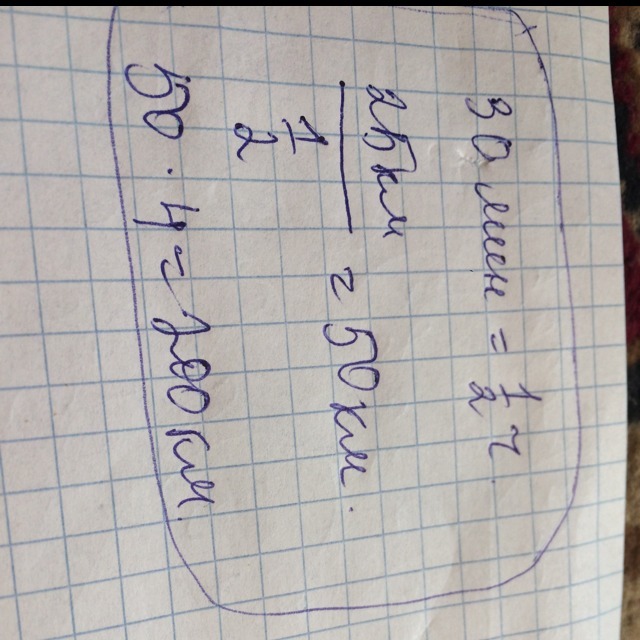 30 мин = 1/2 ч
25 км
―― = 50 км.
1/2
50 · 4 = 200 км.